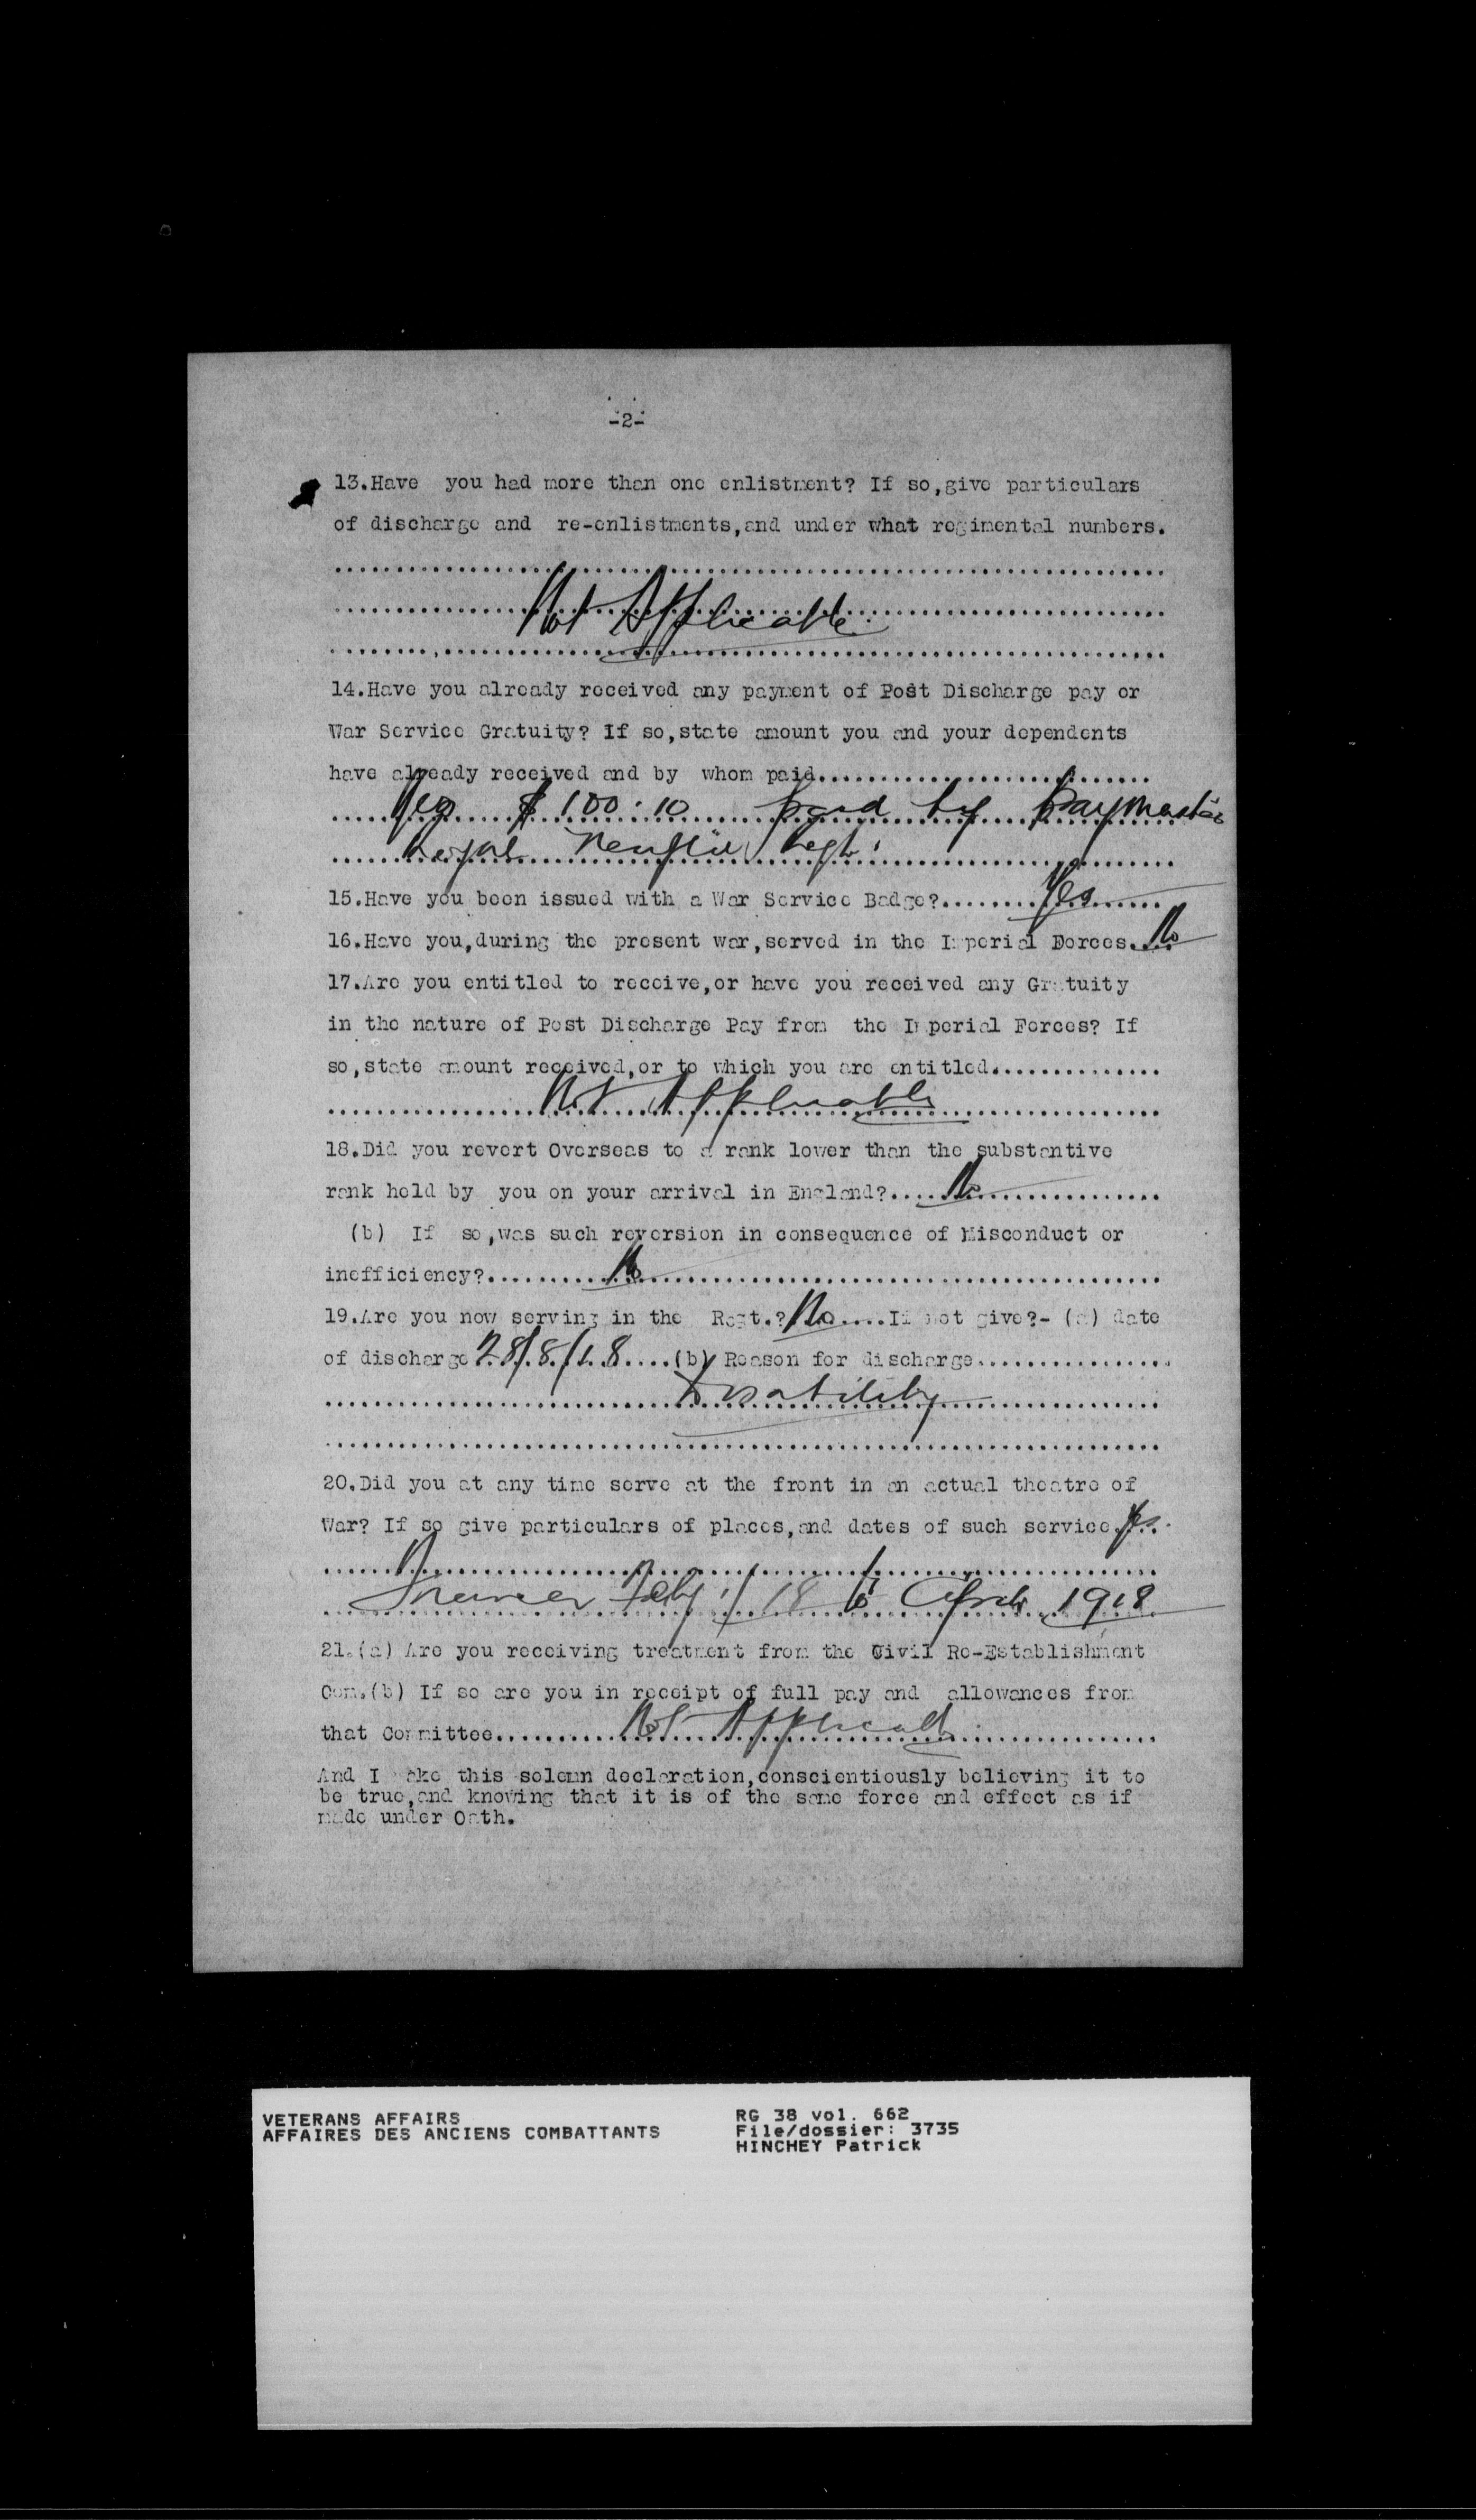 -2-
13.Have you had more than one enlistment? If so,give particulars
of discharge and re-enlistments,and under what regimental numbers.
Not Applicable
14.Have you already received any payment of Post Discharge pay or
War Service Gratuity? If so,state amount you and your dependents
have already received and by whom paid..........
Yes $100.10 paid by Paymaster
Royal Regt.
15.Have you been issued with a War Service Badge?........Yes
16.Have you,during the present war,served in the Imperial Forces. No
17.Are you entitled to receive,or have you received any Gratuity
in the nature of Post Discharge Pay from the Imperial Forces? If
so,state amount received,or to which you are entitled..............
Not Applicable
18.Did you revert Overseas to a rank lower than the substantive
rank held by you on your arrival in England?.....No..........
(b) If so,was such reversion in consequence of Misconduct or
inefficiency?..........No..........
19.Are you now serving in the Regt.? No.....If not give?- (a) date
of discharge 28/8/18....(b) Reason for discharge.................
Disability
20.Did you at any time serve at the front in an actual theatre of
War? If so give particulars of places,and dates of such service. Yes
France Feby 18 to April 1918
21.(a) Are you receiving treatment from the Civil Re-Establishment
Com.(b) If so are you in receipt of full pay and allowances from
that Committee..........Not Applicable..........
And I make this solemn declaration,conscientiously believing it to
be true,and knowing that it is of the same force and effect as if
made under Oath.
VETERANS AFFAIRS
AFFAIRES DES ANCIENS COMBATTANTS
RG 38 vol. 662
File/dossier: 3735
HINCHEY Patrick